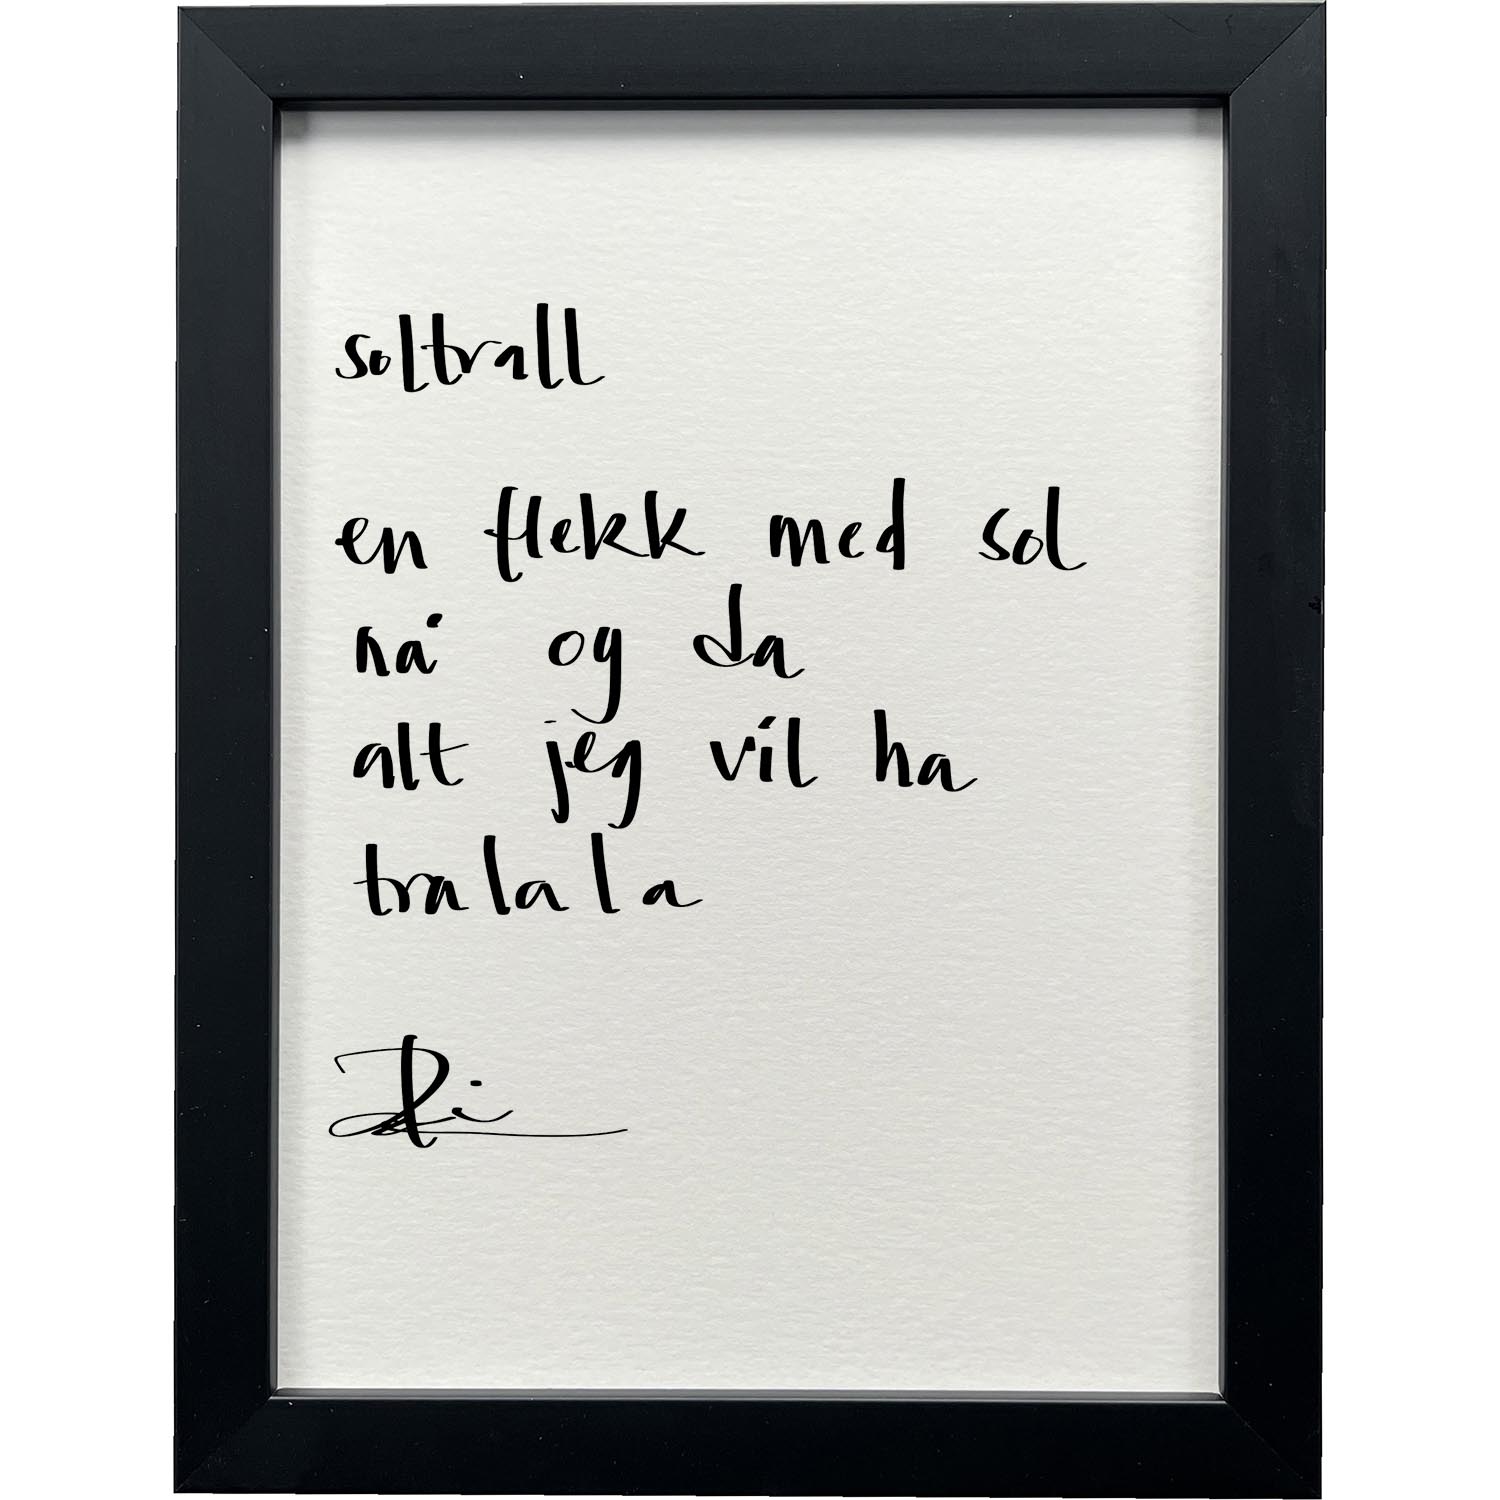 soltrall
en flekk med sol
nå og da
alt jeg vil ha
tra la la